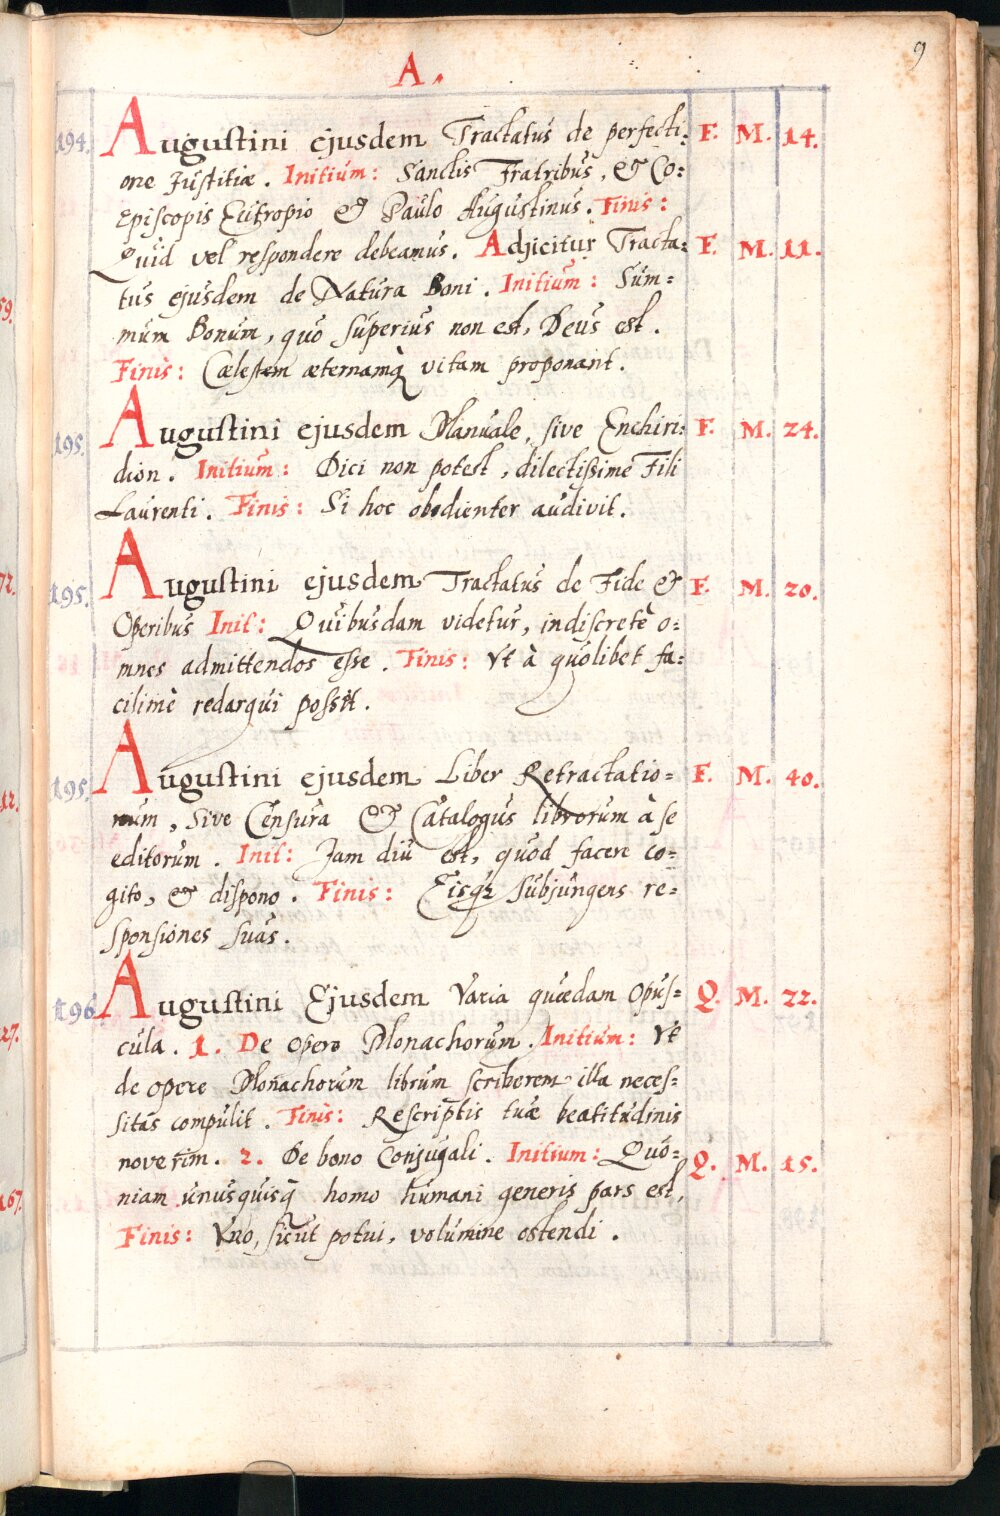 9
A.
194. Augustini ejusdem Tractatus de perfecti= F. M. 14.
one Justitiæ. Initium: Sanctis Fratribus, & Co=
Episcopis Eutropio & Paulo Augustinus. Finis:
Quid vel respondere debeamus. Adjicitur Tracta= F. M. 11.
tus ejusdem de Natura Boni. Initium: Sum=
mum Bonum, quo superius non est, Deus est.
Finis: Cælestem æternamq̃ vitam proponant.
195. Augustini ejusdem Manuale, sive Enchiri= F. M. 24.
dion. Initium: Dici non potest, dilectissime Fili
Laurenti. Finis: Si hoc obedienter audivit.
195. Augustini ejusdem Tractatus de Fide & F. M. 20.
Operibus Init: Quibusdam videtur, indiscretè o=
mnes admittendos esse. Finis: Vt à quolibet fa=
cilimè redargui possit.
195. Augustini ejusdem Liber Retractatio= F. M. 40.
num, sive Censura & Catalogus librorum à se
editorum. Init: Jam diu est, quod facere co=
gito, & dispono. Finis: Eisqz subjungens re=
sponsiones suas.
196. Augustini Ejusdem Varia quædam Opus= Q. M. 22.
cula. 1. De opere Monachorum. Initium: Vt
de opere Monachorum librum scriberem illa neces=
sitas compulit. Finis: Rescriptis tuæ beatitudinis
noverim. 2. De bono Conjugali. Initium: Quo= Q. M. 15.
niam unusquisq̃ homo humani generis pars est,
Finis: Vno, sicut potui, volumine ostendi.
59.
72.
12.
27.
167.